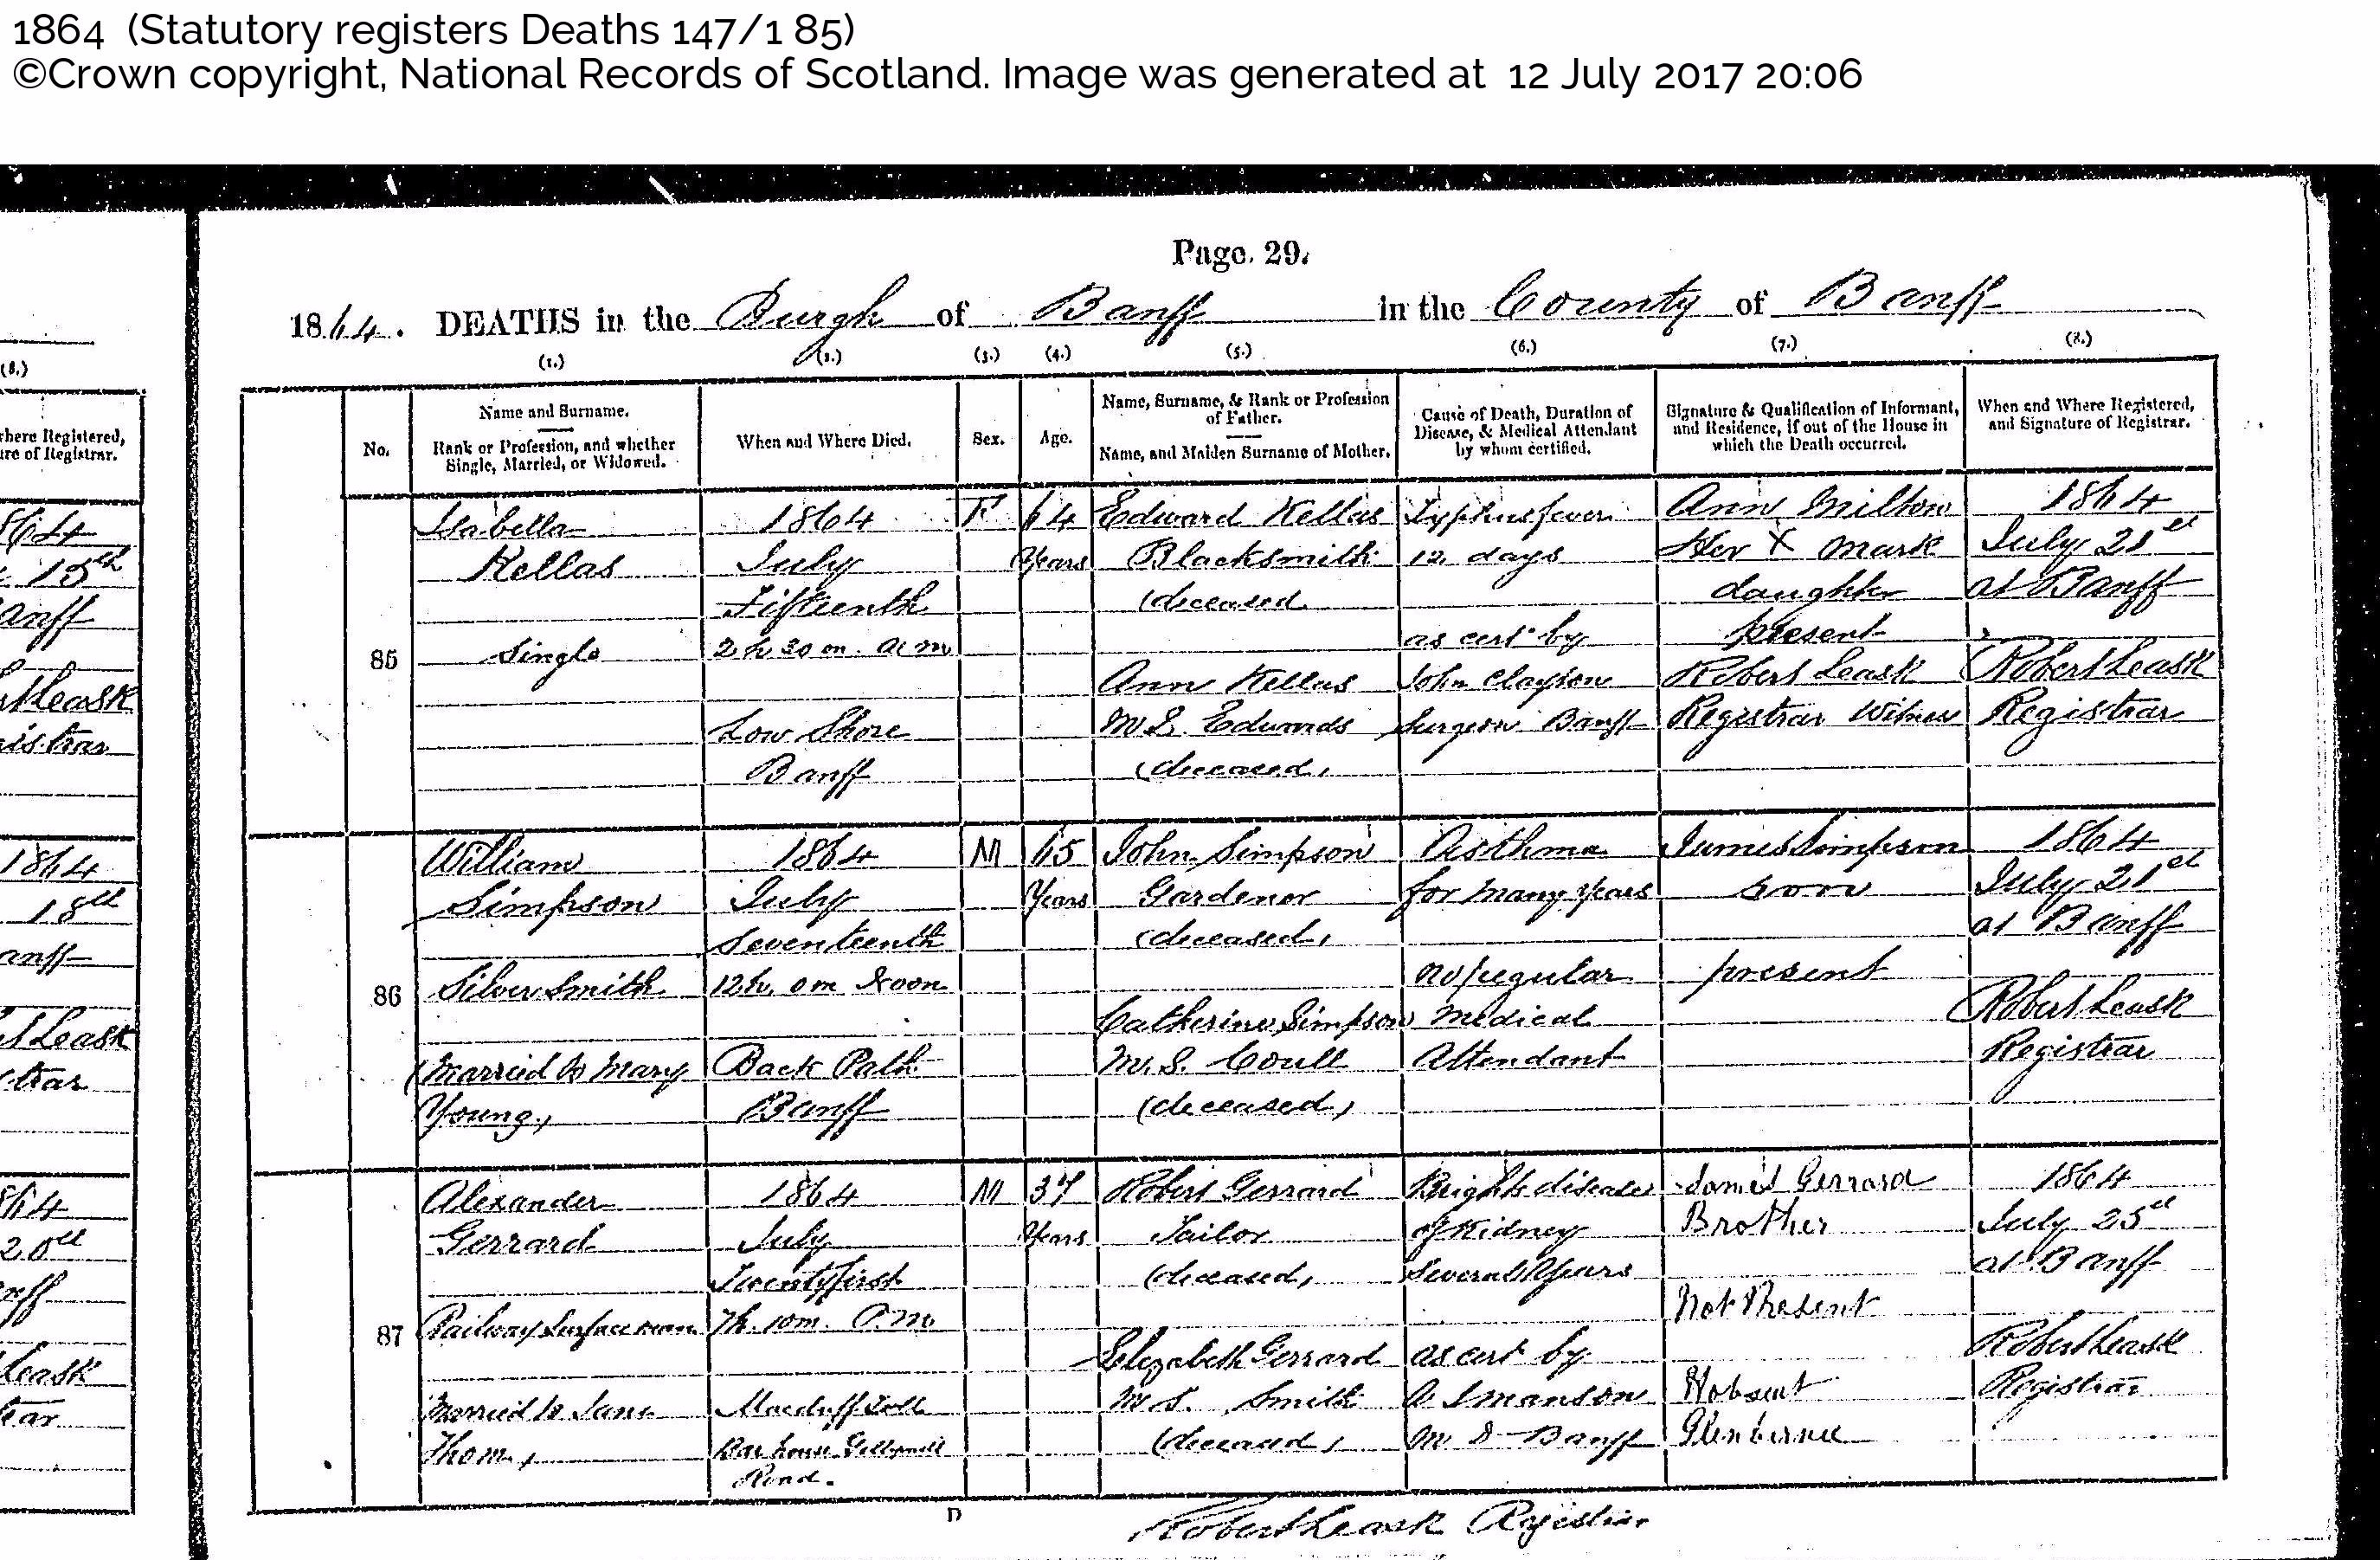 1864 (Statutory registers Deaths 147/1 85)
©Crown copyright, National Records of Scotland. Image was generated at 12 July 2017 20:06
Page. 29.
1864. DEATHS in the Burgh of Banff in the County of Banff
(1.) (2.) (3.) (4.) (5.) (6.) (7.) (8.)
No.
Name and Surname.
Rank or Profession, and whether
Single, Married, or Widowed.
When and Where Died.
Sex.
Age.
Name, Surname, & Rank or Profession
of Father.
Name, and Maiden Surname of Mother.
Cause of Death, Duration of
Disease, & Medical Attendant
by whom certified.
Signature & Qualification of Informant,
and Residence, if out of the House in
which the Death occurred.
When and Where Registered,
and Signature of Registrar.
85
Isabella
Kellas
Single
1864
July
Fifteenth
2 h. 30 m. A.M
Low Shore
Banff
F
64
Years
Edward Kellas
Blacksmith
(deceased
Ann Kellas
M.S. Edwards
(deceased)
Typhus fever
12 days
as cert by
John Clayton
Surgeon Banff
Ann Milton
Her X mark
daughter
present
Robert Leask
Registrar Witness
1864
July 21st
at Banff
Robert Leask
Registrar
86
William
Simpson
Silver Smith
(Married to Mary
Young)
1864
July
Seventeenth
12 h. 0 m Noon
Back Path
Banff
M
65
Years
John Simpson
Gardener
(deceased)
Catherine Simpson
M.S. Coull
(deceased)
Asthma
for many years
no regular
Medical
Attendant
James Simpson
son
present
1864
July 21st
at Banff
Robert Leask
Registrar
87
Alexander
Gerrard
Railway Surfaceman
Married to Jane
Thom)
1864
July
Twenty first
7 h. 10 m. P.M.
Macduff Toll
Bar house Gellymill
Road.
M
37
Years
Robert Gerrard
Tailor
(deceased)
Elizabeth Gerrard
M.S. Smith
(deceased)
Brights disease
of Kidney
Several Years
as cert by
A Manson
M D Banff
James Gerrard
Brother
Not Present
1864
July 25th
at Banff
Robert Leask
Registrar
D
Robert Leask Registrar